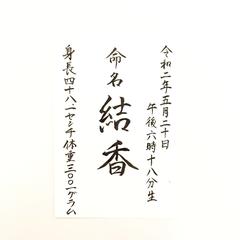 令和二年五月二十日
午後六時十八分生
命名
結香
身長四十八・二センチ体重三〇〇一グラム